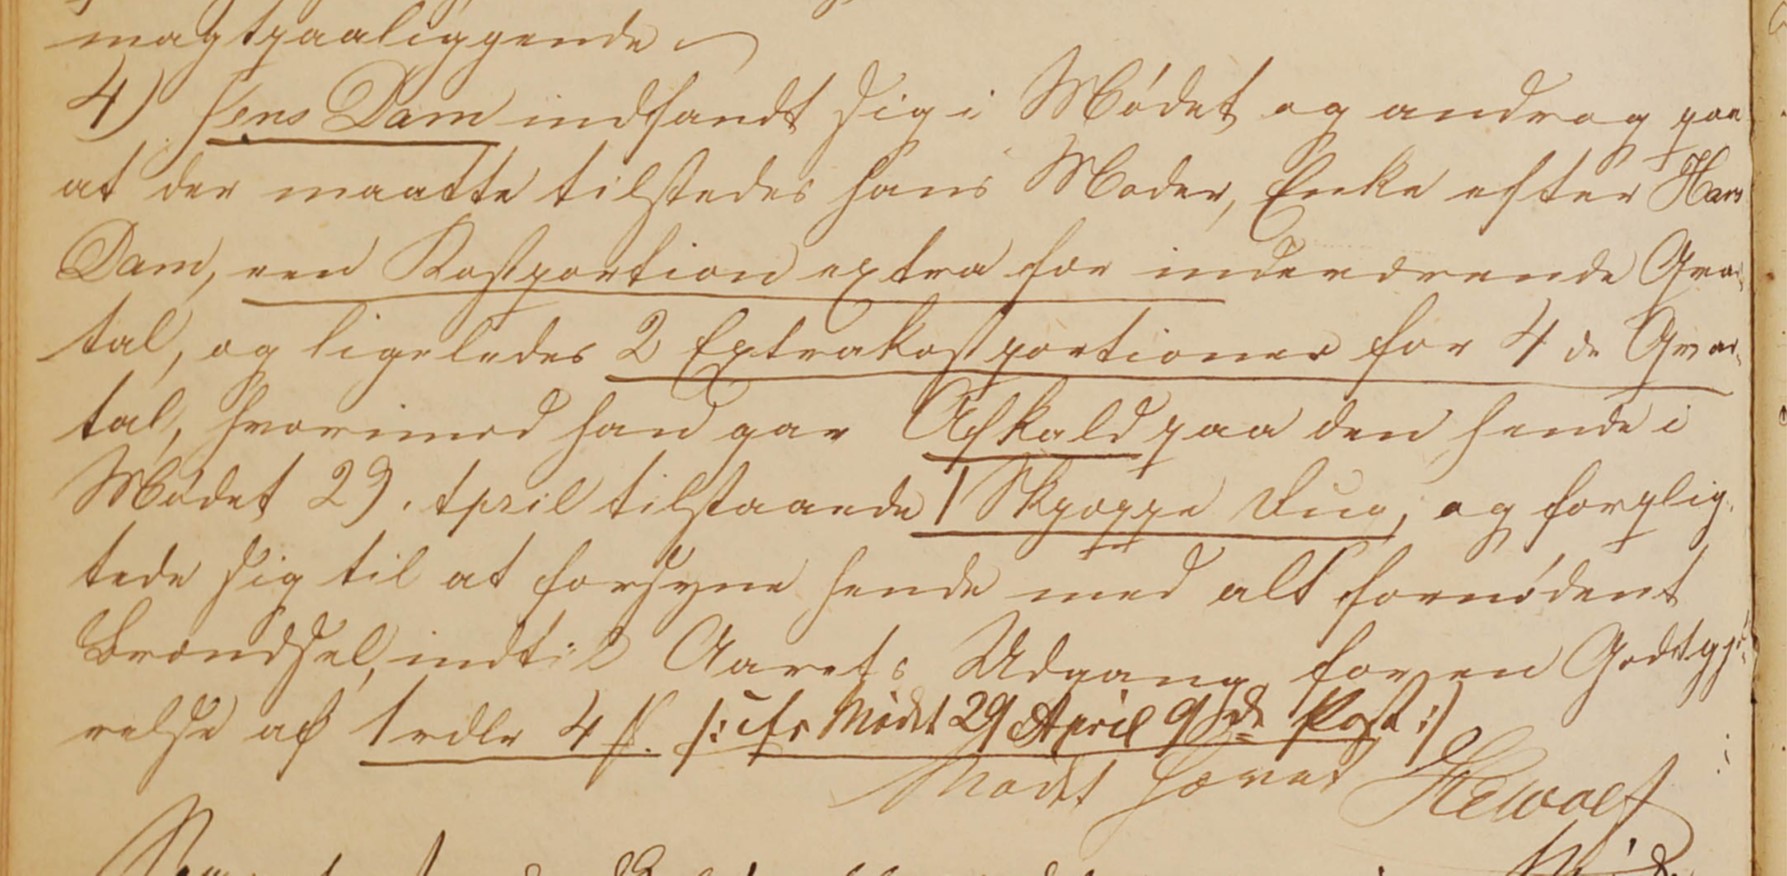 magtpaaliggende
4) Jens Dam indfandt sig i Mødet og androg paa
at der maatte tilstedes hans Moder, Enke efter Hans
Dam, een Kostportion extra for indeværende Qvar-
tal, og ligeledes 2 Extrakostportioner for 4de Qvar-
tal, hvorimod han gav Afkald paa den hende i
Mødet 29. April tilstaaede 1 Skpæppe Rug, og forplig-
tede sig til at forsyne hende med alt fornødent
Brændsel, indtil Aarets Udgang for en Godtgjø-
relse af 1 rdlr 4 ß. /: cfr Mødet 29 April 9de Post :/
Mødet hævet